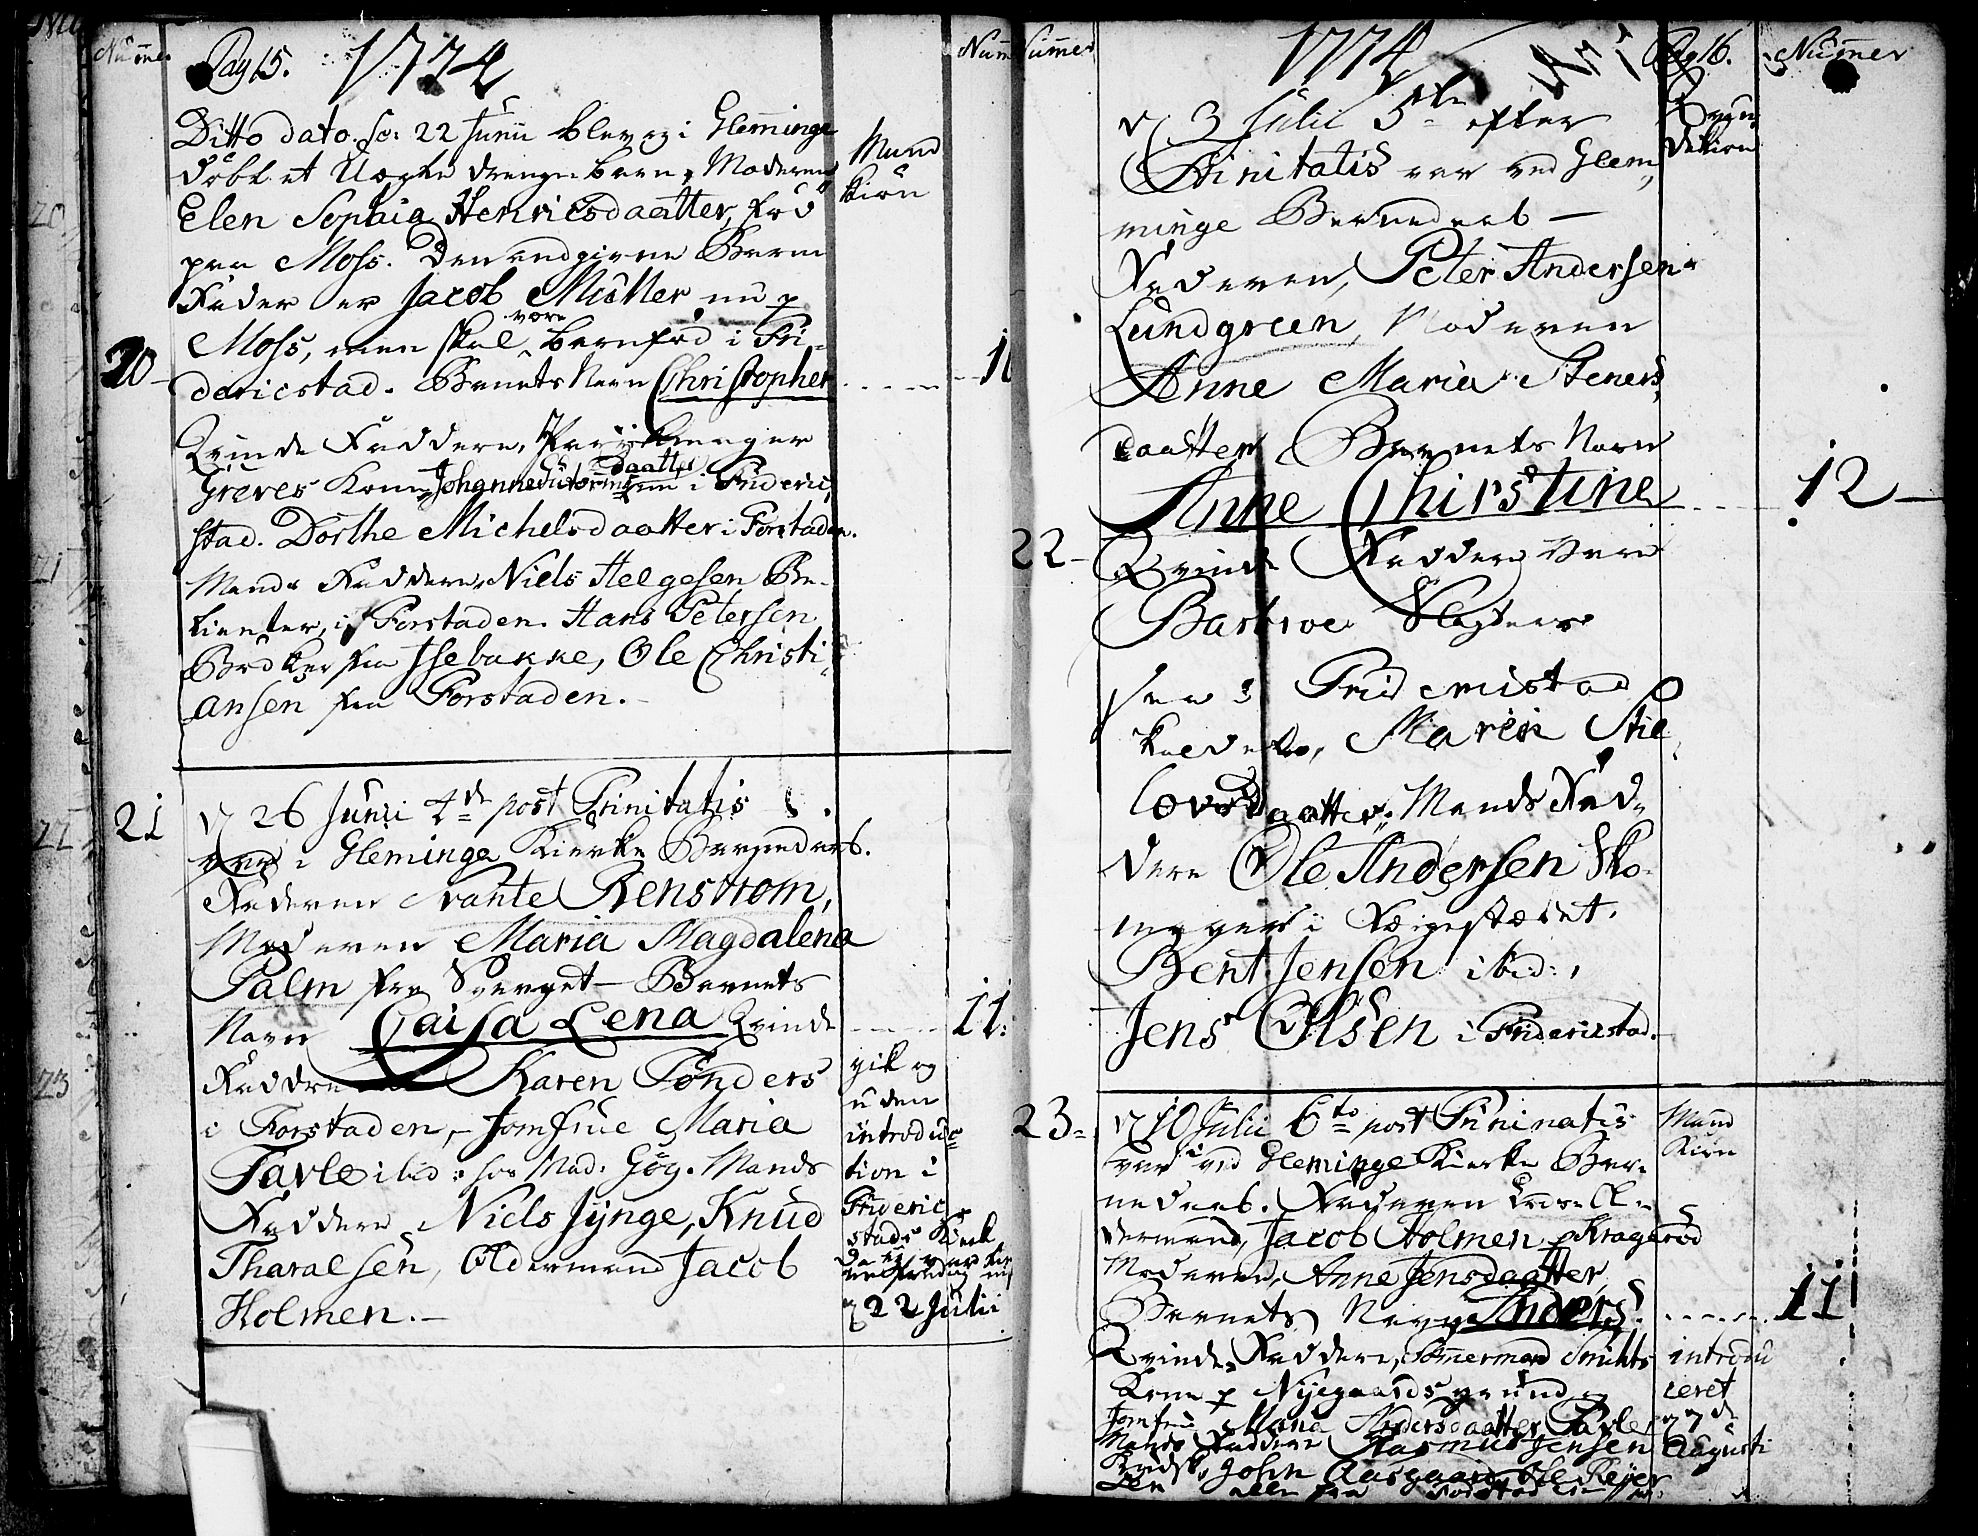 Nummer
Pag 15. 1774
Numm
Ditto dato. so: 22 Junii blev og i Gleminge
döbt et Uægte drengebarn, Moderen
Elen Sophia Henricsdaatter, fød
paa Moss. Den endgivne Barne
Fader er Jacob Müller nu p
Moss, men skal være barnfød i Fri-
dericstad. Barnets Navn Christopher
Mand
kiøn
20
Qvinde Faddere, Parykmager
Greves Kone, Johanne daatter i Frideric,
stad. Dorthe Michelsdaatter i Forstaden.
Mands Faddere, Niels Helgesen Be-
tienter, i Forstaden. Hans Petersen
Bødker fra Isebakke, Ole Christi-
ansen fra Forstaden.
21
d 26 Junii 4de post Trinitatis
var i Gleminge Kierke Barnedaab.
Faderen Svante Renstrom,
Moderen Maria Magdalena
Palm fra Sverget - Barnets
Navn Caisa Lena Qvinde
11.
Faddre Karen Tønders
i Forstaden, Jomfrue Maria
Tavle ibid: hos Mad: Gög. Mands
Faddere Niels Jynge, Knud
Tharalsen, Oldermand Jacob
Holmen.
gik og
uden
introduc
tion i
Frideric
stads Kirk
d 22 Julii
Nummer
1774
Pag 16.
Nummer
d 3 Julii 5te efter
Trinitatis var ved Glem,
minge Barnedaab
Faderen, Peter Andersen
Lundgreen, Moderen
Anne Maria Steners,
daatter, Barnets Navn
Anne Chirstine
12
22
Qvinde Faddere vare
Barbroe
fra Fridericstad
Maren Stil
lovsdaatter. Mands Fad-
dere Ole Andersen Sko-
mager i Færgestædet.
Bent Jensen ibid:,
Jens Olsen i Fridericstad.
Qvin
dekiøn
23
d 10 Julii 6to post Trininatis
var ved Gleminge Kierke Bar-
nedaab. Faderen Lods-Ol-
dermand, Jacob Holmen p Kragerød
Moderen, Anne Jensdaatter
Barnets Navn Anders.
11
Mand
Kiøn
Qvinde Faddere, Tømmermand Smidts
Kone p Nyegaards grund
Jomfru Maria Andersdaatter Tavle
Mands Faddere Rasmus Jensen
John Aasgaard, Ole Reyer
introdu
ceret
d 7de
Augusti